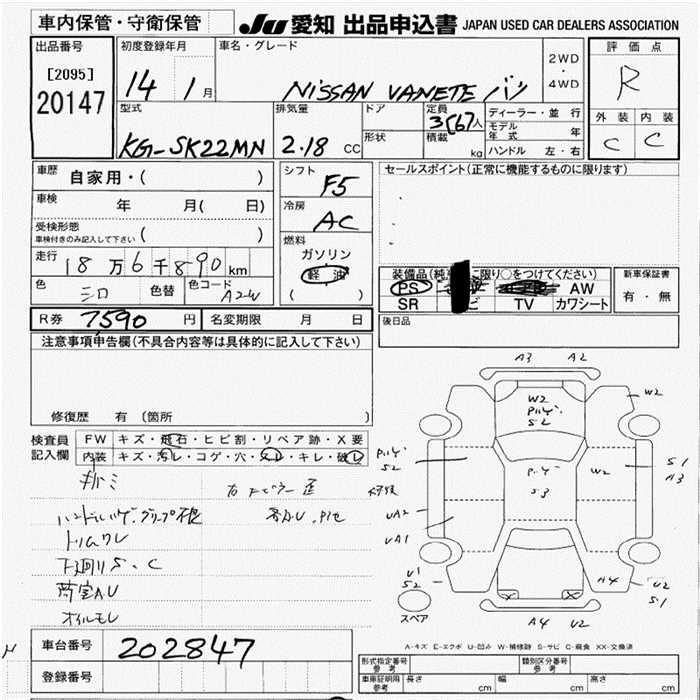 車内保管・守衛保管
JU 愛知 出品申込書 JAPAN USED CAR DEALERS ASSOCIATION
出品番号
[2095]
20147
初度登録年月
14 1月
車名・グレード
NISSAN VANETE バン
2WD
・
4WD
評価点
R
外装 内装
C C
型式
KG-SK22MN
排気量
2.18 CC
ドア
形状
定員
人
積載
kg
ディーラー・並行
モデル年式 年
ハンドル 左・右
車歴
自家用・( )
車検
年 月( 日)
受検形態
車検付きのみ記入して下さい ( )
走行
18万6千890km
色
シロ
色替
色コード
A2W
シフト
F5
冷房
AC
燃料
ガソリン
軽油
( )
セールスポイント(正常に機能するものに限ります)
装備品(純 に限り○をつけてください)
PS AW
SR ビ TV カワシート
新車保証書
有・無
R券 7590円
名変期限 月 日
後日品
注意事項申告欄(不具合内容等は具体的に記入して下さい)
修復歴 有 (箇所 )
検査員
記入欄
FW キズ・飛石・ヒビ割・リペア跡・X要
内装 キズ・汚レ・コゲ・穴・スレ・キレ・破レ
トリムワレ
下廻りS、C
荷室AU
オイルモレ
A3 A2
W2
W2
S2
S2
S3
W2
S1
A3
UA2
UA1
U1
S2
A4
U2
S1
A4 U2
スペア
A-キズ E-エクボ U-凹み W-補修跡 S-サビ C-腐食 XX-交換済
車台番号
202847
登録番号
形式指定番号
参考
類別区分番号
参考
車庫証明用
参考
長さ cm 幅 cm 高さ cm